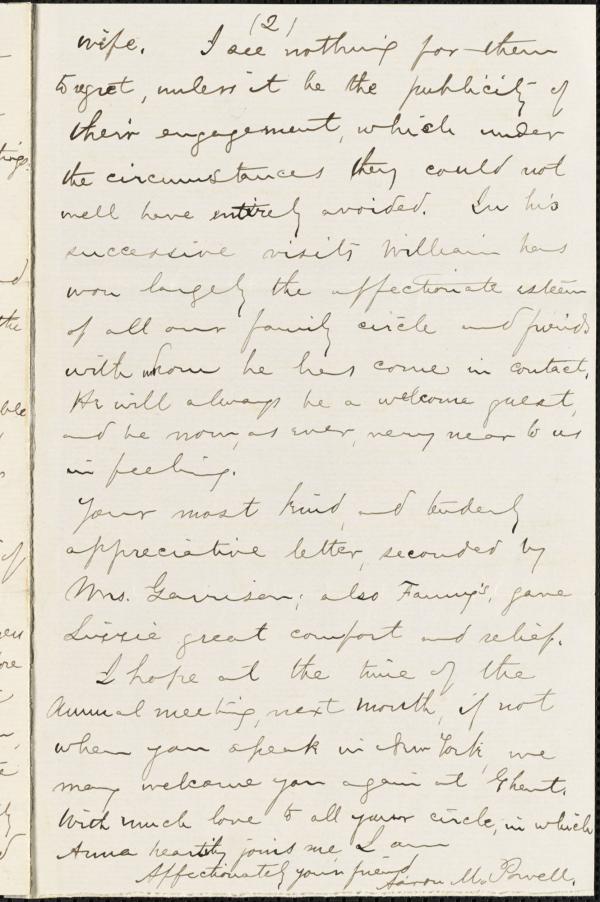 (2)
wife. I see nothing for them
to regret, unless it be the publicity of
their engagement, which under
the circumstances they could not
well have entirely avoided. In his
successive visits William has
won largely the affectionate esteem
of all our family circle and friends
with whom he has come in contact.
He will always be a welcome guest,
and be now, as ever, very near to us
in feeling.
Your most kind, and tenderly
appreciative letter, seconded by
Mrs. Garrison; also Fanny's, gave
Lizzie great comfort and relief.
I hope at the time of the
Annual meeting, next month, if not
when you speak in New York, we
may welcome you again at Ghent.
With much love to all your circle, in which
Anna heartily joins me I am
Affectionately your friend
Aaron M. Powell.